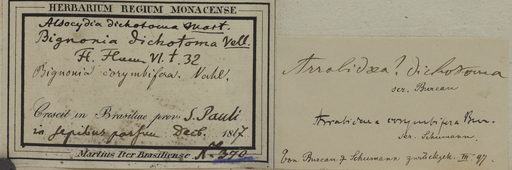 HERBARIUM REGIUM MONACENSE
Alsocydia dichotoma Mart.
Bignonia dichotoma Vell.
Fl. Flum VI. t. 32
Bignonia corymbifera. Vahl.
Crescit in Brasiliae prov. S. Pauli
in sepibus passim Decb. 1817
Martius Iter Brasiliense No 370
Arrabidaea? dichotoma
scr. Bureau
Arrabidaea corymbifera Bur.
scr. Schumann.
Von Bureau & Schumann zurück III. 97.